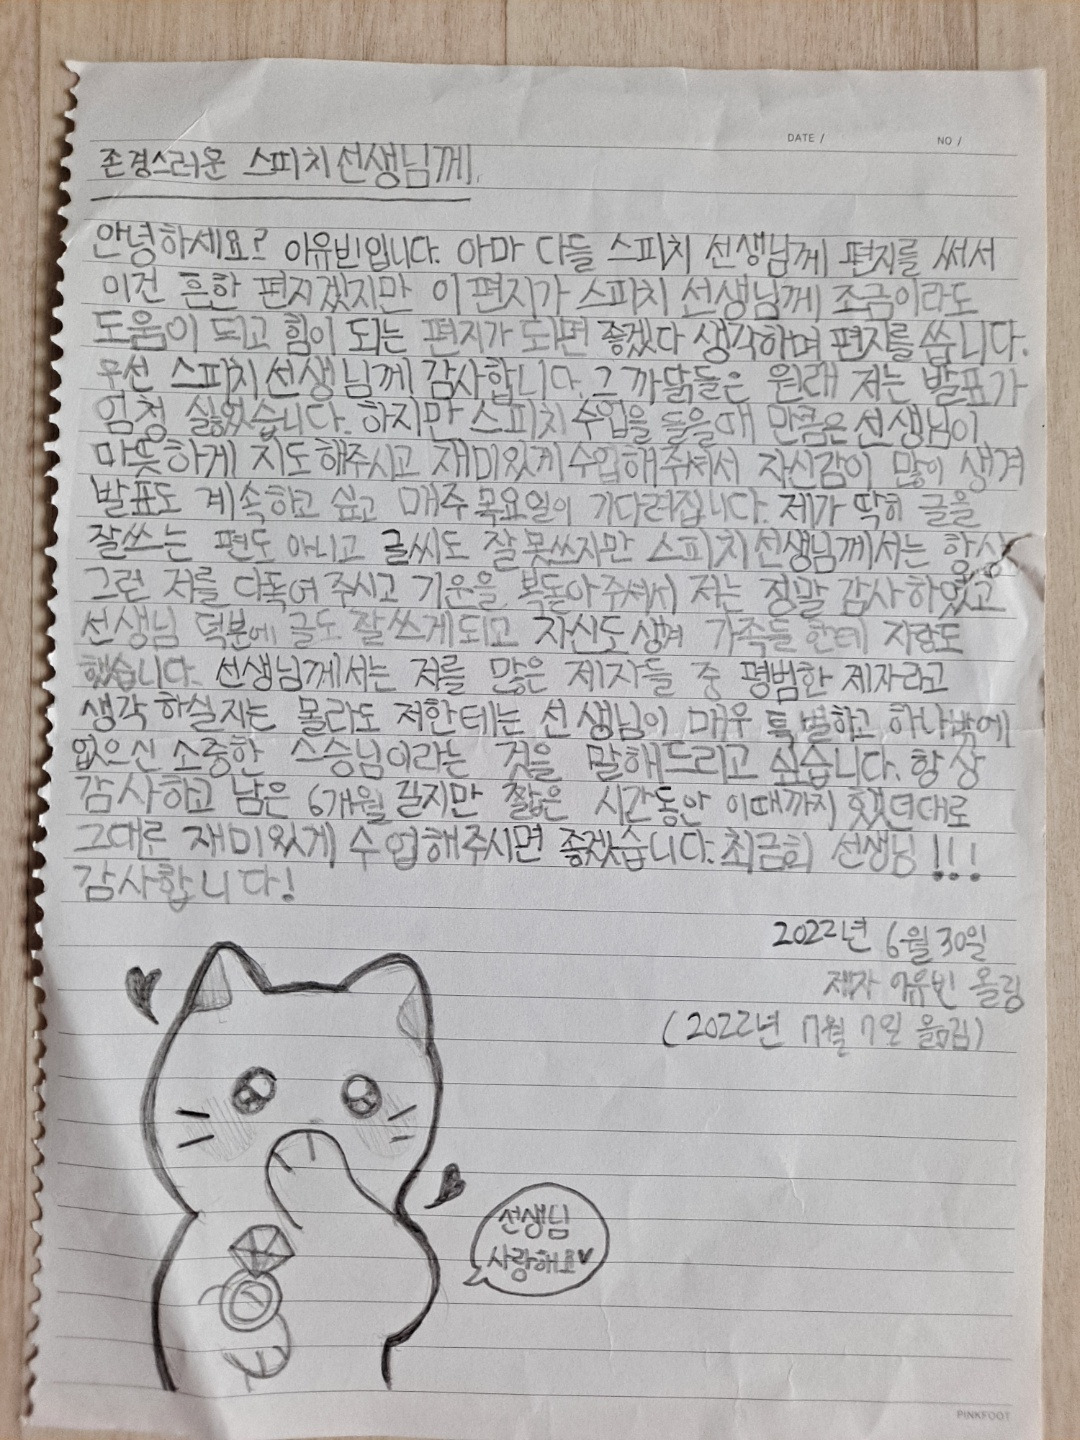 DATE /
NO /
존경스러운 스피치 선생님께.
안녕하세요? 아유빈입니다. 아마 다들 스피치 선생님께 편지를 써서
이건 흔한 편지겠지만 이 편지가 스피치 선생님께 조금이라도
도움이 되고 힘이 되는 편지가 되면 좋겠다 생각하며 편지를 씁니다.
우선 스피치 선생님께 감사합니다. 그 까닭들은 원래 저는 발표가
엄청 싫었습니다. 하지만 스피치 수업을 들을때 만큼은 선생님이
따뜻하게 지도해주시고 재미있게 수업해주셔서 자신감이 많이 생겨
발표도 계속하고 싶고 매주 목요일이 기다려집니다. 제가 딱히 글을
잘쓰는 편도 아니고 글씨도 잘 못쓰지만 스피치 선생님께서는 항상
그런 저를 다독여 주시고 기운을 북돋아주셔서 저는 정말 감사하였고
선생님 덕분에 글도 잘쓰게되고 자신도생겨 가족들한테 자랑도
했습니다. 선생님께서는 저를 많은 제자들 중 평범한 제자라고
생각 하실지는 몰라도 저한테는 선생님이 매우 특별하고 하나밖에
없으신 소중한 스승님이라는 것을 말해드리고 싶습니다. 항상
감사하고 남은 6개월 길지만 짧은 시간동안 이때까지 했던대로
그대로 재미있게 수업해주시면 좋겠습니다. 최금희 선생님!!!
감사합니다!
2022년 6월 30일
제자 아유빈 올림
(2022년 7월 7일 옮김)
선생님
사랑해요♥
PINKFOOT